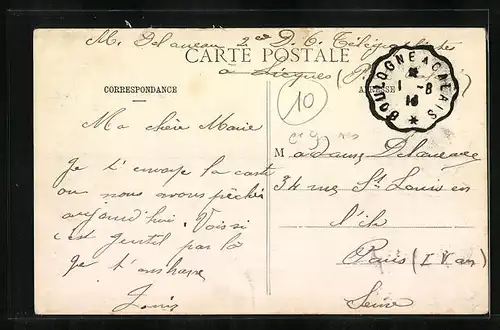 M. Delaneau 2e D. 6. Télégraphistes
CARTE POSTALE
à Licques
BOULOGNE A CALAIS
1 -8
16
CORRESPONDANCE
ADRESSE
10
Ma chère Marie
Je t'envoye la carte
ou nous avons pêché
aujourd'hui. Vois si
c'est gentil par là
Je t'embrasse
Louis
Madame Delaneau
34 rue St Louis en
l'ile
Paris (IV arr)
Seine